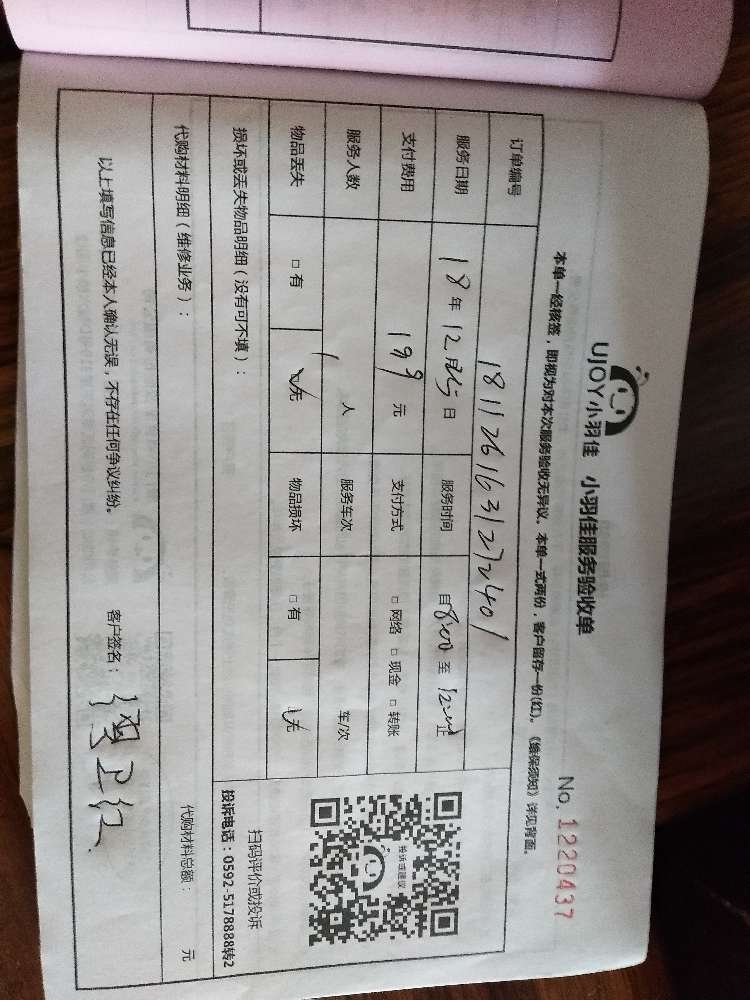 UJOY小羽佳 小羽佳服务验收单
No. 1220437
本单一经核签，即视为对本次服务验收无异议。本单一式两份，客户留存一份(红)。《维保须知》详见背面。
订单编号
服务日期 18年12月25日 服务时间 自8:00至12:00止
支付费用 199元 支付方式 □网络 □现金 □转账
服务人数 1人 服务车次 车/次
物品丢失 □有 无 物品损坏 □有 无
损坏或丢失物品明细（没有可不填）：
投诉或建议
扫码评价或投诉
投诉电话：0592-5178888转2
代购材料明细（维修业务）： 代购材料总额： 元
以上填写信息已经本人确认无误，不存在任何争议纠纷。 客户签名：